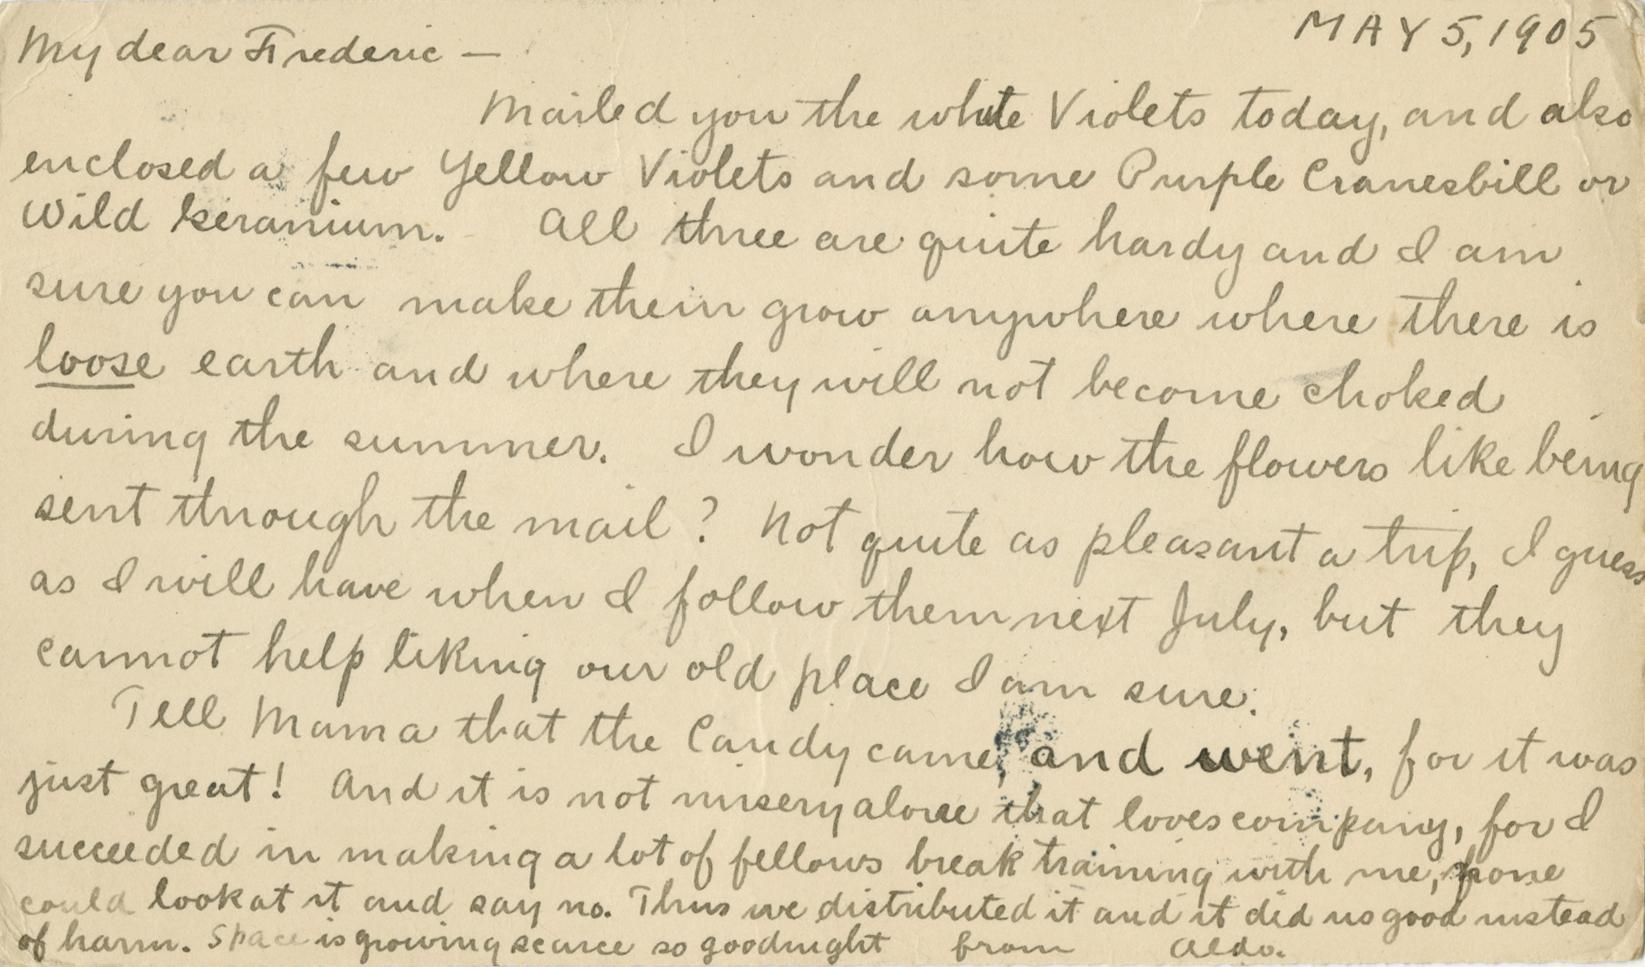 MAY 5, 1905
My dear Frederic —
Mailed you the white Violets today, and also
enclosed a few Yellow Violets and some Purple Cranesbill or
Wild Geranium. All three are quite hardy and I am
sure you can make them grow anywhere where there is
loose earth and where they will not become choked
during the summer. I wonder how the flowers like being
sent through the mail? Not quite as pleasant a trip, I guess
as I will have when I follow them next July, but they
cannot help liking our old place I am sure.
Tell Mama that the Candy came, and went, for it was
just great! And it is not misery alone that loves company, for I
succeeded in making a lot of fellows break training with me, none
could look at it and say no. Thus we distributed it and it did us good instead
of harm. Space is growing scarce so goodnight from Aldo.